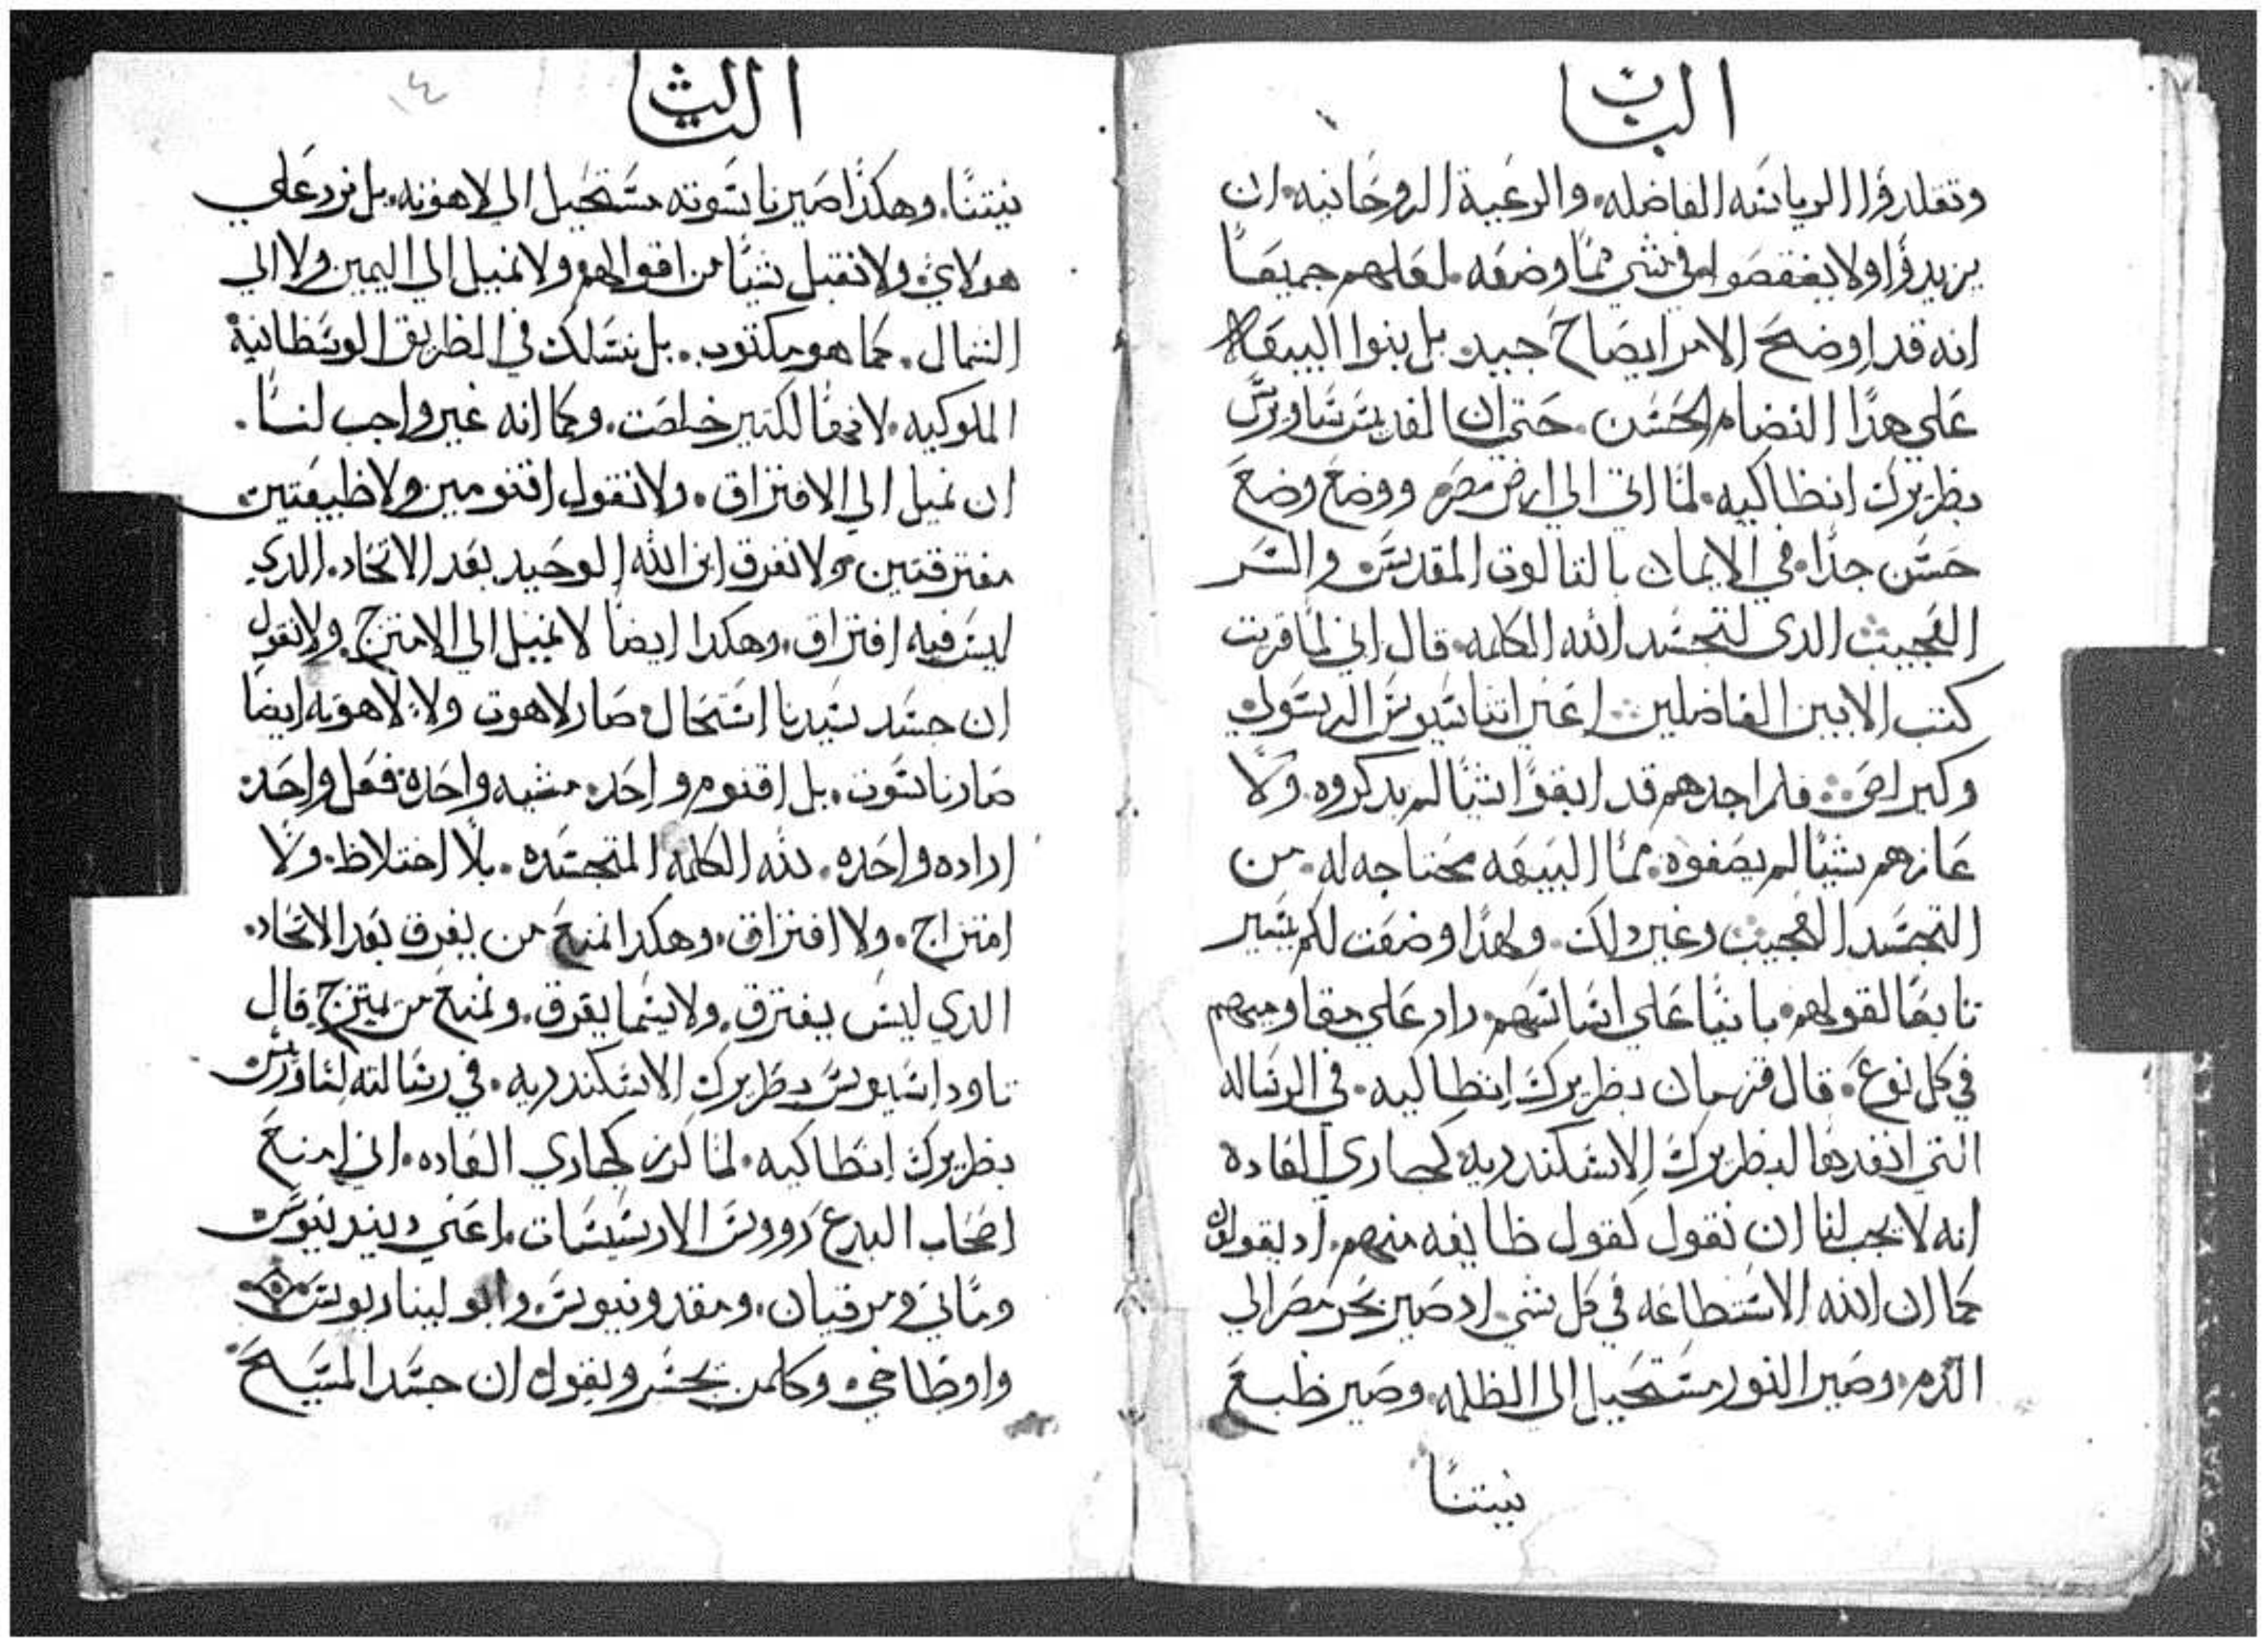 الباب
وتقلدوا الرياسه الفاضله. والرعية الروحانيه. ان
يزيدوا ولا ينقصوا في شي مما وضعه. لعلهم جميعا
انه قد اوضح الامر ايضاح جيد بل بنوا البيعه
علي هذا النضام الحسن. حتي ان القديس ساويرس
بطريرك انطاكيه. لما اتي الي ارض مصر. ووضع وضع
حسن جدا. في الايمان بالتالوت المقدس. والسر
العجيب الدي لتجسد الله الكلمه. قال اني لما قريت
كتب الابين الفاضلين اعني اتناسيوس الرسولي
وكيرلص. فلم اجدهم قد ابقوا شيا لم يدكروه. ولا
عازهم شيا لم يصفوه. مما البيعه محتاجه له. من
التجسد العجيب وغير دلك. ولهدا وضعت لكم يسير
تابعا لقولهم. بانيا علي اساسهم. راد علي مقاومينهم
في كل نوع. قال قزمان بطريرك انطاكيه. في الرساله
التي انفدها لبطريرك الاسكندريه كجاري العاده
انه لا يجب لنا ان نقول كقول طايفه منهم. اد يقولون
كما ان الله الاستطاعه في كل شي. اد صير بحر مصر الي
الدم. وصير النور مستحيل الي الظلمه. وصير طبع
نيتنا
التالت
١٤
نيتنا. وهكدا صير ناسوته مستحيل الي لاهوته. بل نرد علي
هولاي. ولا نقبل شيا من اقوالهم ولا نميل الي اليمين ولا الي
الشمال. كما هو مكتوب. بل نسلك في الطريق الوسطانية
الملوكيه. لانها لكتير خلصت. وكما انه غير واجب لنا.
ان نميل الي الافتراق. ولا نقول اقنومين ولا طبيعتين
مفترقتين ولا نفرق ابن الله الوحيد بعد الاتحاد. الدي
ليس فيه افتراق. وهكدا ايضا لا نميل الي الامتزج. ولا نقول
ان جسد سيدنا استحال صار لاهوت ولا لاهوته ايضا
صار ناسوت. بل اقنوم واحد. مشيه واحده. فعل واحد.
اراده واحده. لله الكلمه المتجسده. بلا اختلاط. ولا
امتزاج. ولا افتراق. وهكدا نمنع من يفرق بعد الاتحاد.
الدي ليس يفترق. ولا يسما يفرق. ونمنع من يمتزج. قال
تاوداسيوس بطريرك الاسكندريه. في رسالته لساورس
بطريرك انطاكيه. لما كرز كجاري العاده. اني امنع
اصحاب البدع رووس الارسيسات. اعني ويندنيوس
وماني ومرقيان. ومقدونيوس. وابوليناريوس
واوطاخي. وكلمن يجسر ويقول ان جسد المسيح